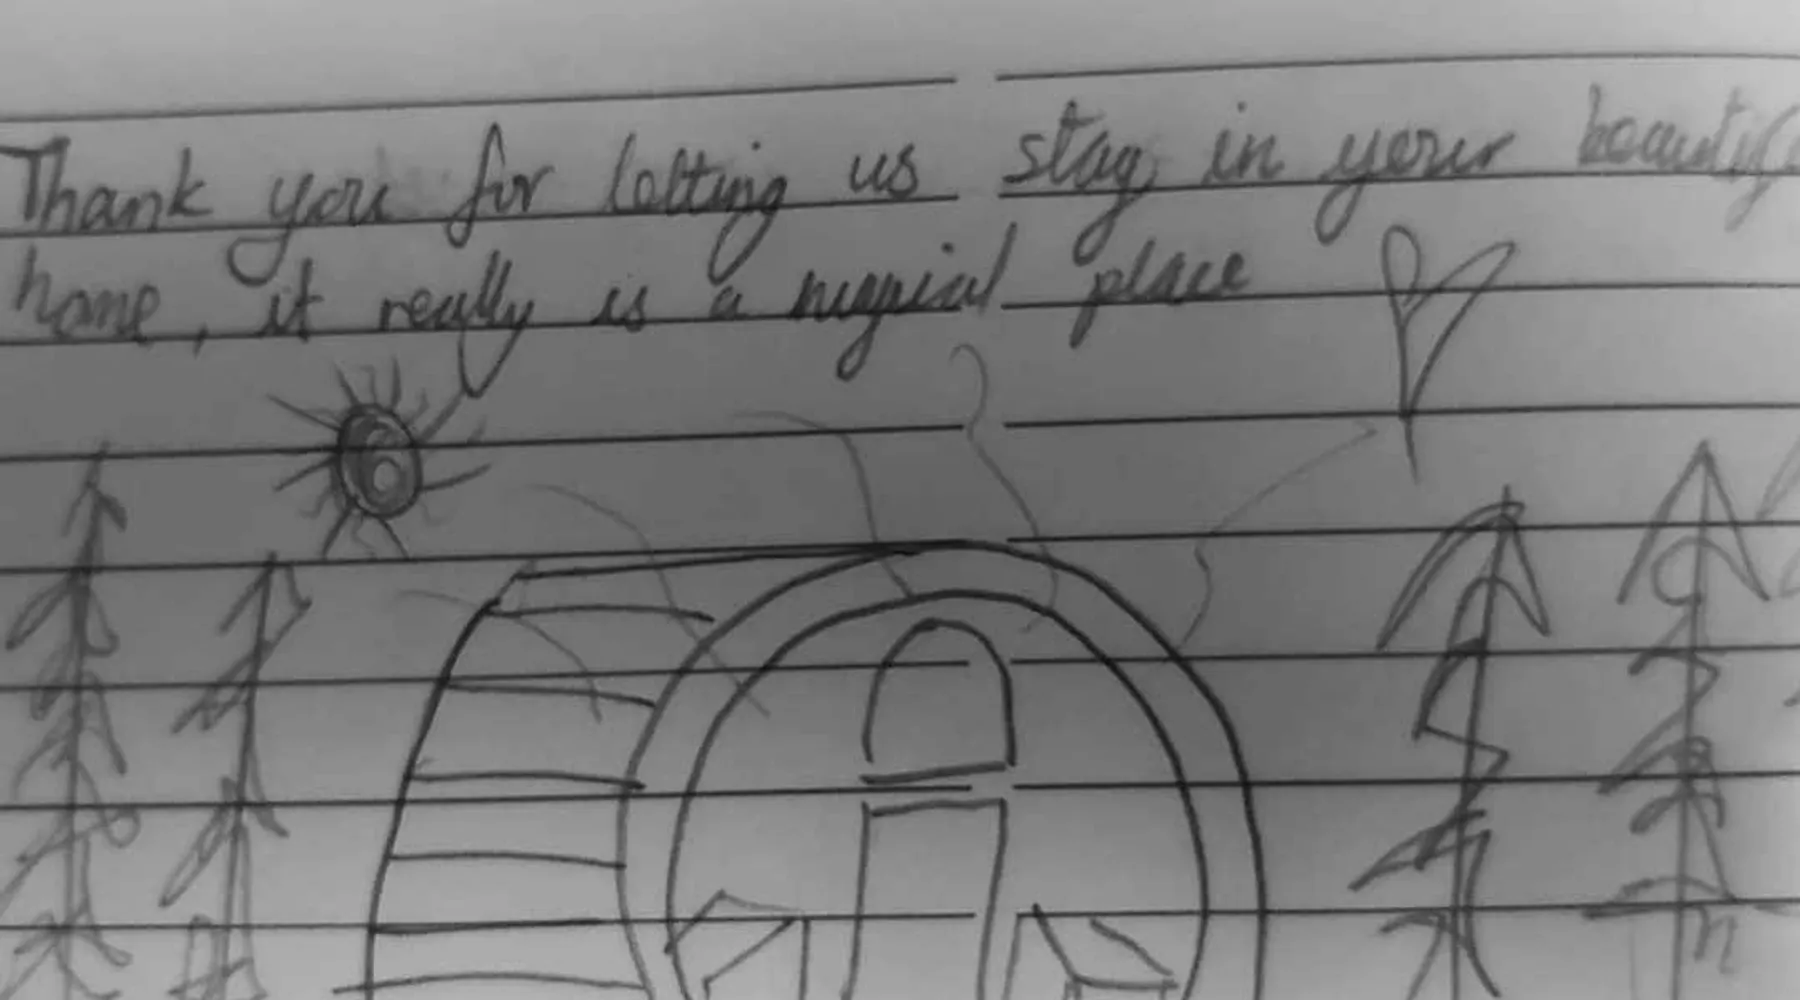 Thank you for letting us stay in your beautif
home, it really is a magical place